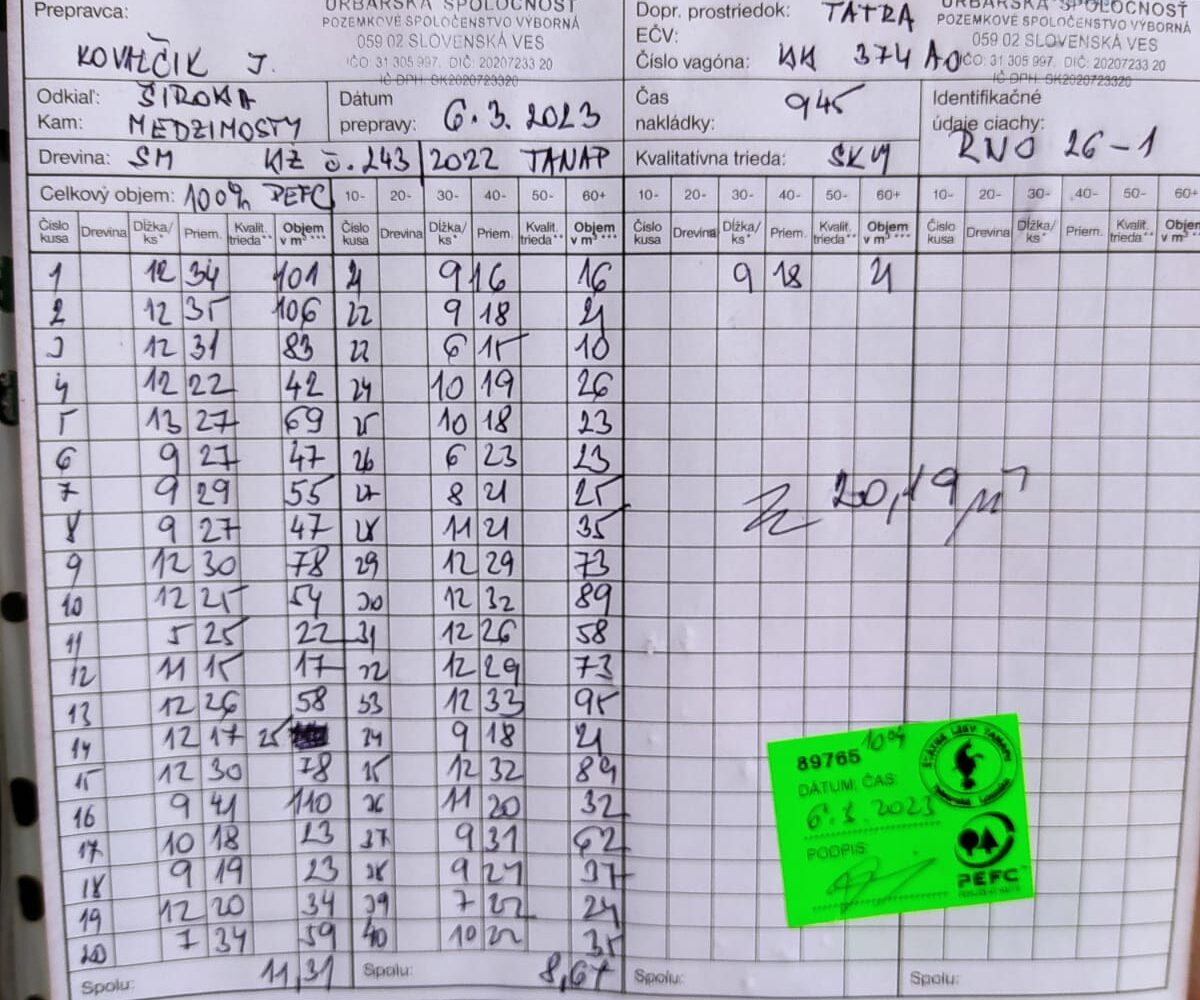 Prepravca:
KOVALČIK J.
URBÁRSKA SPOLOČNOSŤ
POZEMKOVÉ SPOLOČENSTVO VÝBORNÁ
059 02 SLOVENSKÁ VES
IČO: 31 305 997, DIČ: 20207233 20
IČ DPH: SK2020723320
Dopr. prostriedok: TATRA
EČV:
Číslo vagóna: KK 374 AO
URBÁRSKA SPOLOČNOSŤ
POZEMKOVÉ SPOLOČENSTVO VÝBORNÁ
059 02 SLOVENSKÁ VES
IČO: 31 305 997, DIČ: 20207233 20
IČ DPH: SK2020723320
Odkiaľ: ŠIROKA
Kam: MEDZIMOSTY
Dátum prepravy: 6.3.2023
Čas nakládky: 945
Identifikačné údaje ciachy: RNO 26-1
Drevina: SM KŽ č. 243/2022 TANAP
Kvalitatívna trieda: SKM
Celkový objem: 100% PEFC 10- 20- 30- 40- 50- 60+ 10- 20- 30- 40- 50- 60+ 10- 20- 30- 40- 50- 60+
Číslo kusa Drevina Dĺžka/ks* Priem. Kvalit. trieda** Objem v m³*** Číslo kusa Drevina Dĺžka/ks* Priem. Kvalit. trieda** Objem v m³*** Číslo kusa Drevina Dĺžka/ks* Priem. Kvalit. trieda** Objem v m³*** Číslo kusa Drevina Dĺžka/ks* Priem. Kvalit. trieda** Objem v m³***
1 12 34 101 21 9 16 16 9 18 21
2 12 35 106 22 9 18 21
3 12 31 83 23 6 15 10
4 12 22 42 24 10 19 26
5 13 27 69 25 10 18 23
6 9 27 47 26 6 23 23
7 9 29 55 27 8 21 25
20,19 m³
8 9 27 47 28 11 21 35
9 12 30 78 29 12 29 73
10 12 25 54 30 12 32 89
11 5 25 22 31 12 26 58
12 11 15 17 32 12 29 73
13 12 26 58 33 12 33 95
14 12 17 25 34 9 18 21
15 12 30 78 35 12 32 89
16 9 41 110 36 11 20 32
17 10 18 23 37 9 31 62
18 9 19 23 38 9 24 37
19 12 20 34 39 7 22 24
20 7 34 59 40 10 22 35
Spolu: 11,31 Spolu: 8,67 Spolu: Spolu:
89765
DÁTUM, ČAS:
6.3.2023
PODPIS:
PEFC